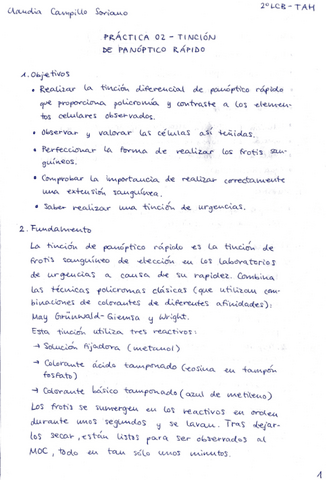 Claudia Campillo Soriano
2º LCB - TAH
PRÁCTICA 02 - TINCIÓN
DE PANÓPTICO RÁPIDO
1. Objetivos
• Realizar la tinción diferencial de panóptico rápido
que proporciona policromía y contraste a los elemen-
tos celulares observados.
• Observar y valorar las células así teñidas.
• Perfeccionar la forma de realizar los frotis san-
guíneos.
• Comprobar la importancia de realizar correctamente
una extensión sanguínea.
• Saber realizar una tinción de urgencias.
2. Fundamento
La tinción de panóptico rápido es la tinción de
frotis sanguíneo de elección en los laboratorios
de urgencias a causa de su rapidez. Combina
las técnicas policromas clásicas (que utilizan com-
binaciones de colorantes de diferentes afinidades):
May Grünwald-Giemsa y Wright.
Esta tinción utiliza tres reactivos:
→ Solución fijadora (metanol)
→ Colorante ácido tamponado (eosina en tampón
fosfato)
→ Colorante básico tamponado (azul de metileno)
Los frotis se sumergen en los reactivos en orden
durante unos segundos y se lavan. Tras dejar-
los secar, están listos para ser observados al
MOC, todo en tan sólo unos minutos.
1